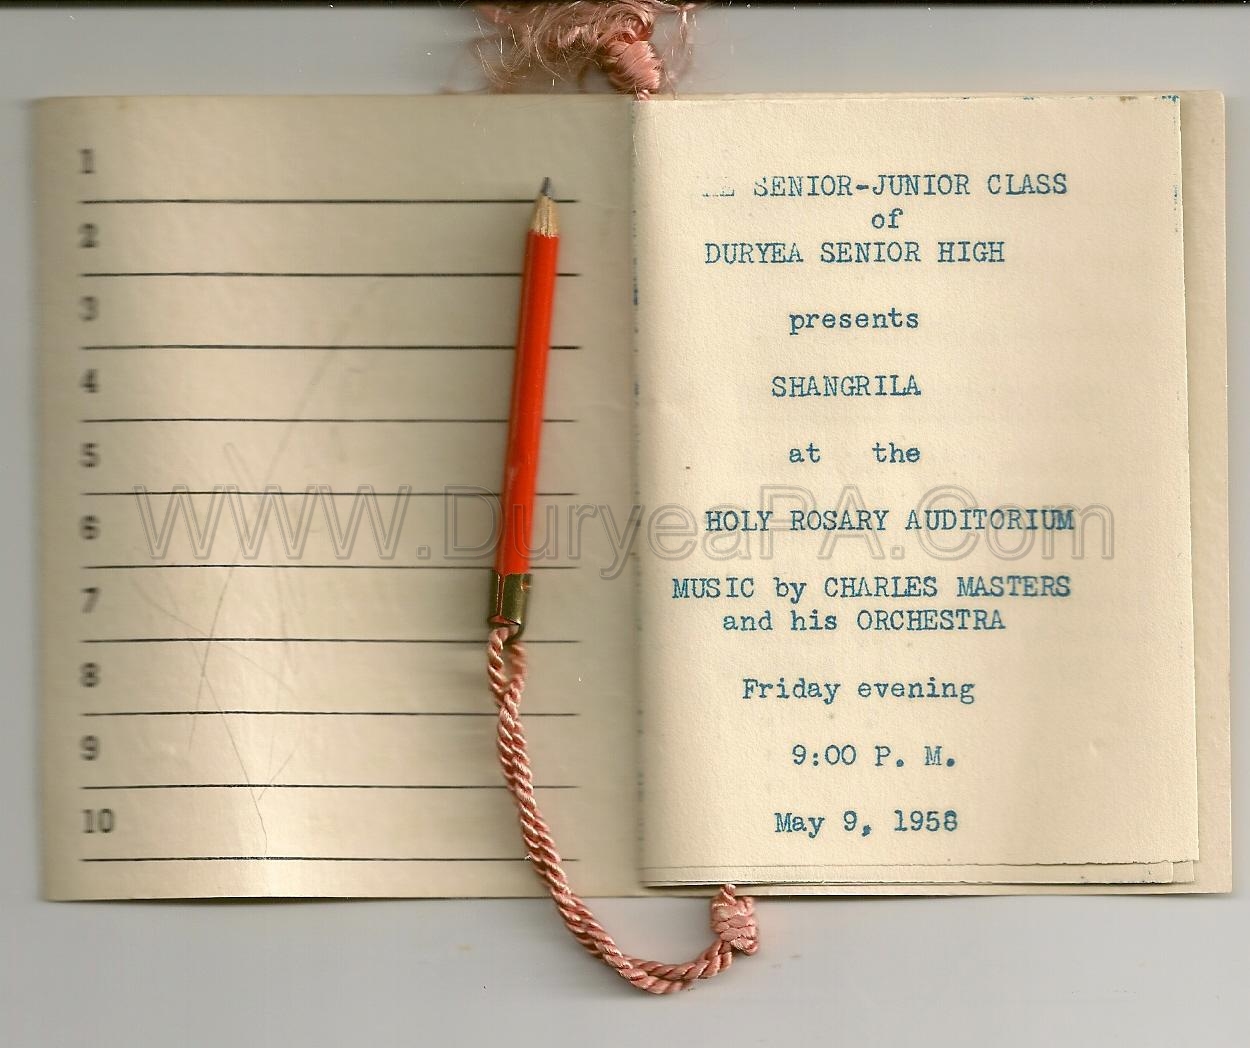 1
2
3
4
5
6
7
8
9
10
SENIOR-JUNIOR CLASS
of
DURYEA SENIOR HIGH
presents
SHANGRILA
at the
HOLY ROSARY AUDITORIUM
MUSIC by CHARLES MASTERS
and his ORCHESTRA
Friday evening
9:00 P. M.
May 9, 1958
WWW.DuryeaPA.Com